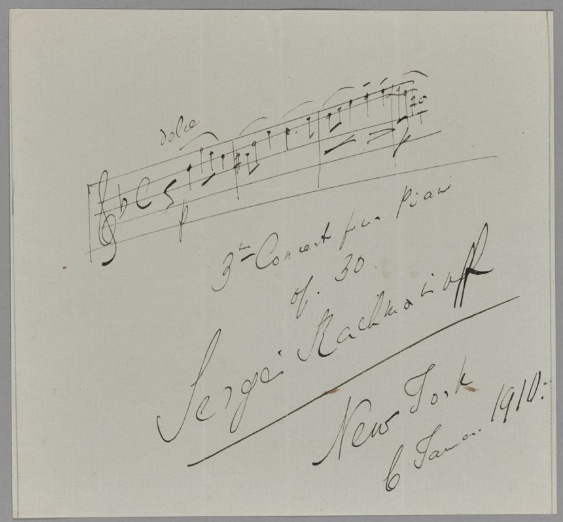 dolce
p
p
3ter Concert für Piano
op. 30.
Sergei Rachmaninoff
New York
6 Januar. 1910.